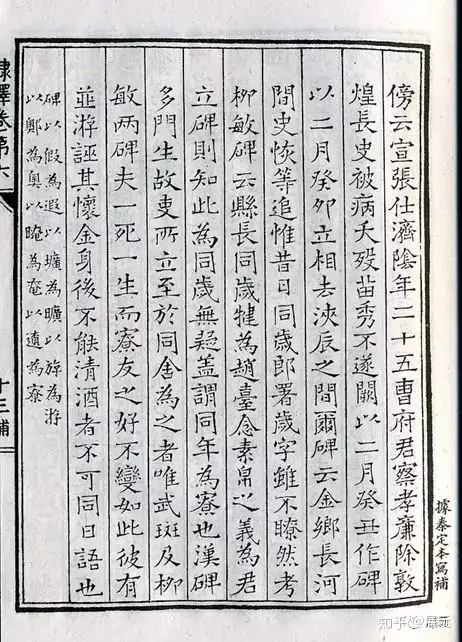 據泰定本寫補
傍云宣張仕濟陰年二十五曹府君察孝廉除敦
煌長史被病夭歿苗秀不遂闕以二月癸丑作碑
以二月癸卯立相去浹辰之間爾碑云金鄉長河
間史恢等追惟昔日同歲郎署歲字雖不瞭然考
柳敏碑云縣長同歲犍為趙臺念素帛之義為君
立碑則知此為同歲無疑盖謂同年為寮也漢碑
多門生故吏所立至於同舍為之者唯武斑及柳
敏两碑夫一死一生而寮友之好不變如此彼有
並游誣其懷金身後不能清酒者不可同日語也
碑以假為遐以壙為曠以斿為游
以鄭為奥以晻為奄以遼為寮
隸釋卷第六
十三補
知乎